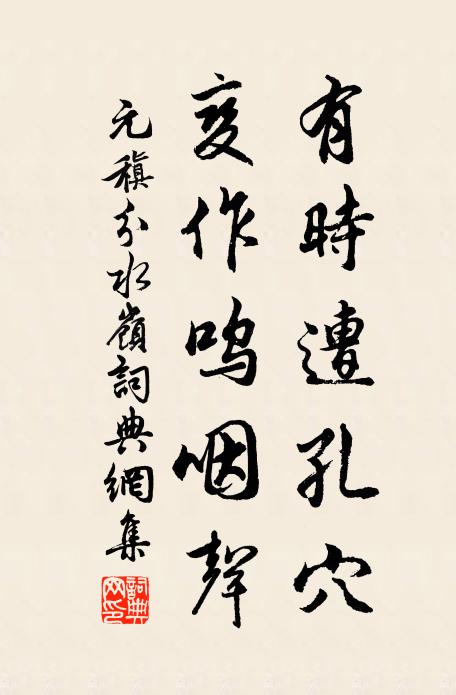 有時遭孔穴
变作嗚咽聲
元稹分水嶺詞典網集
詞典網印